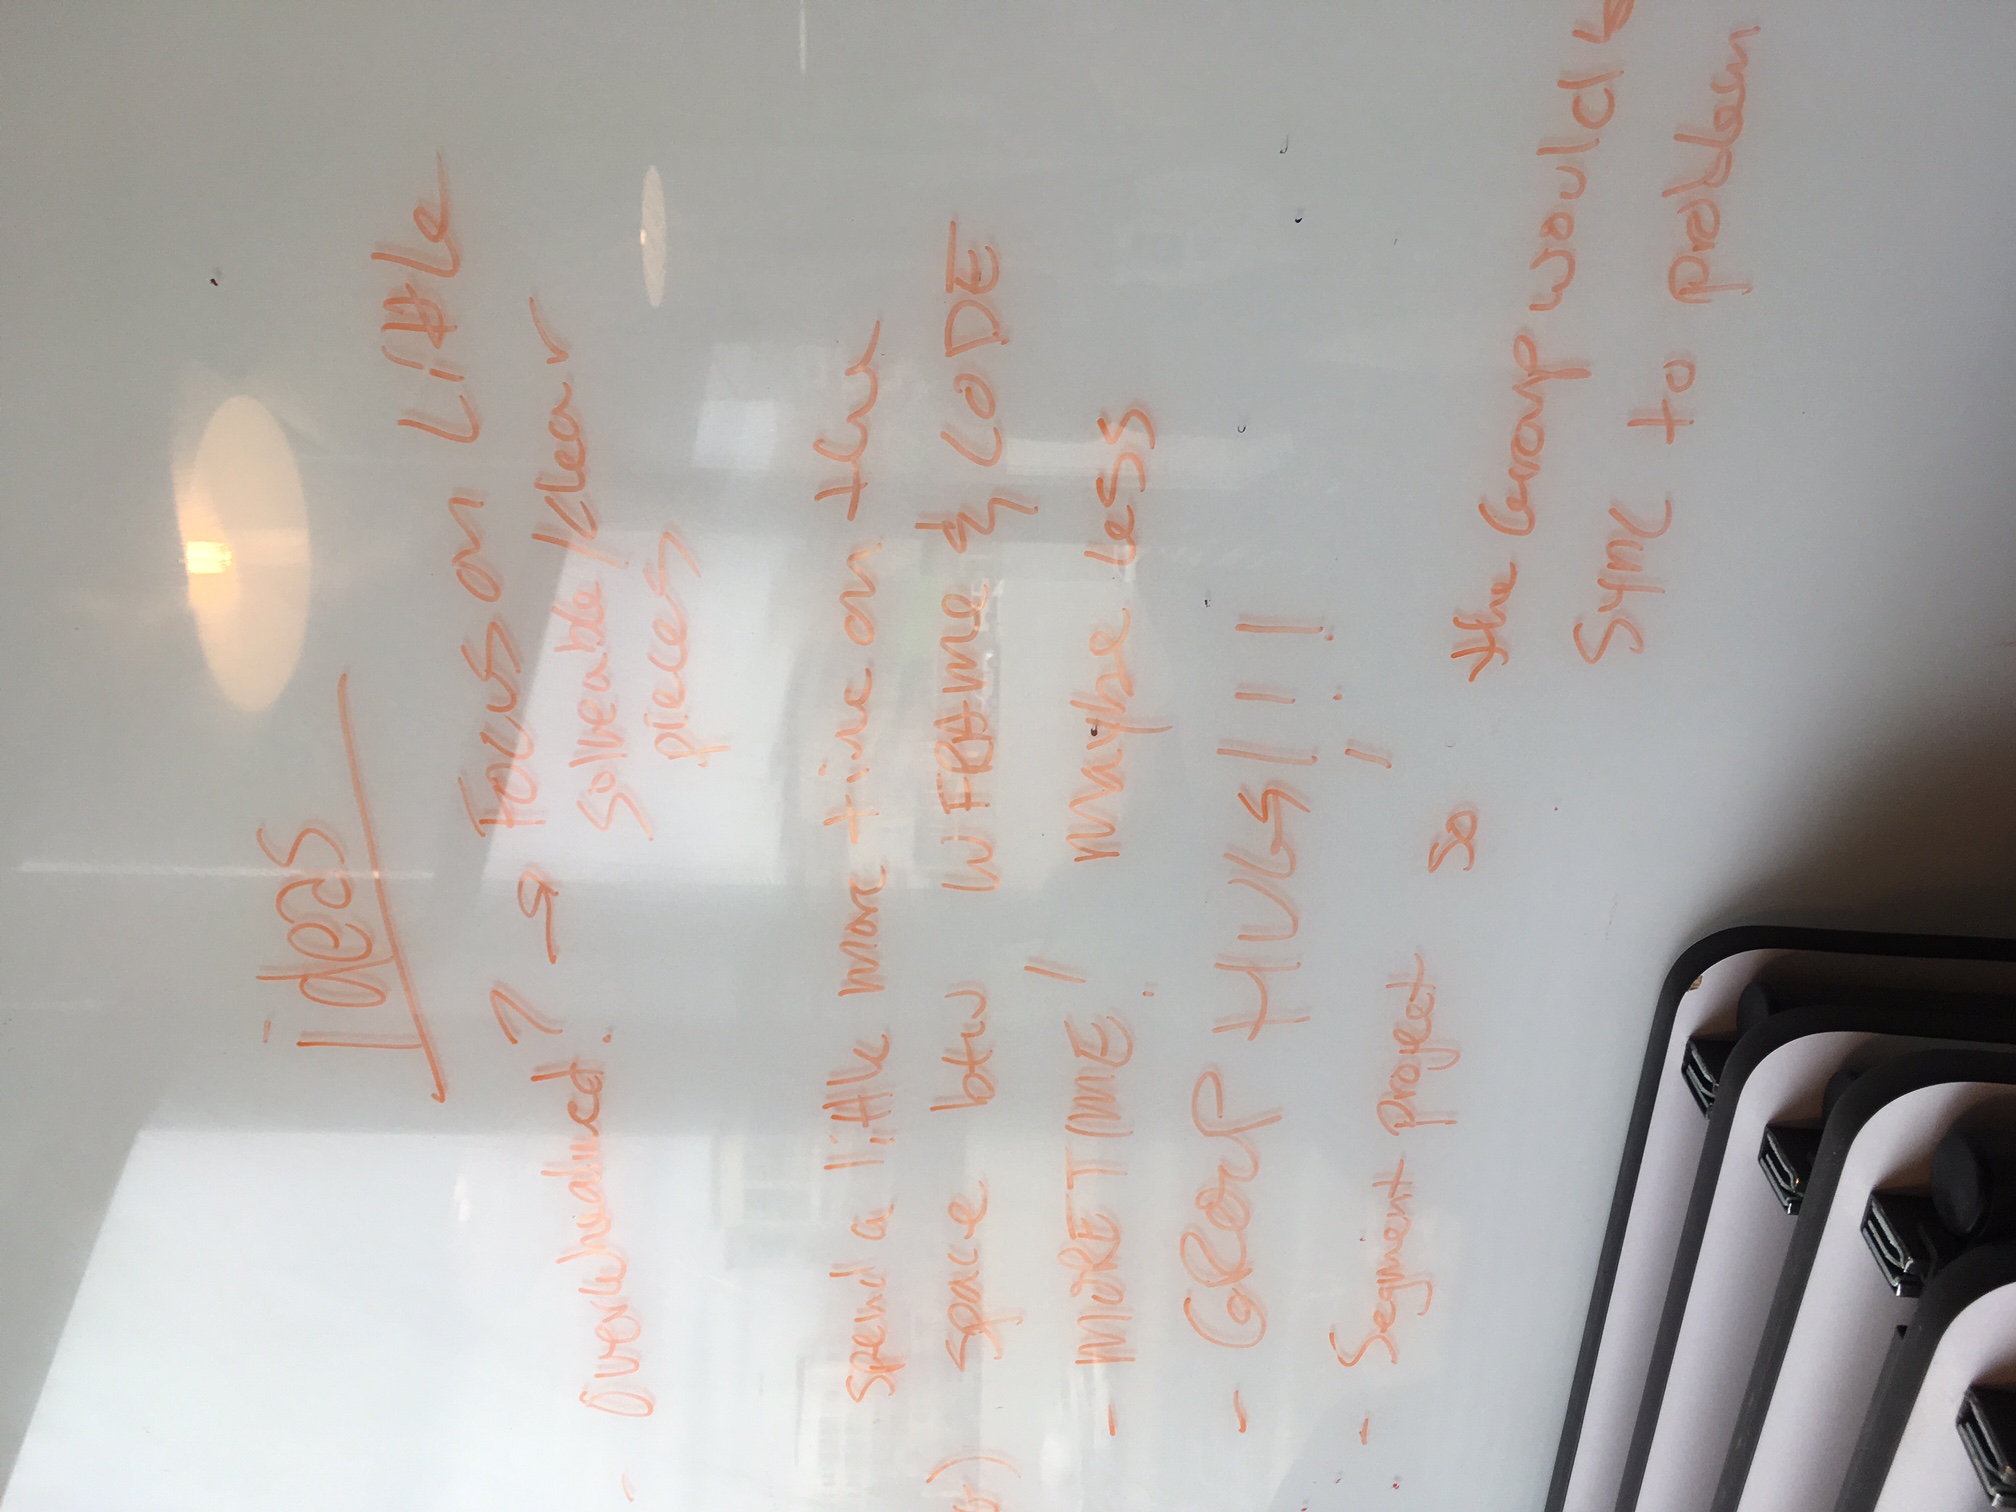 ideas
- overwhealmed? → Focus on Little
solveable/clear
pieces
spend a little more time on the
space btw WFRAME & CODE
- MORE TIME! Maybe Less
- GROUP HUGS!!!
- Segment project so the Group would
Sync to problem